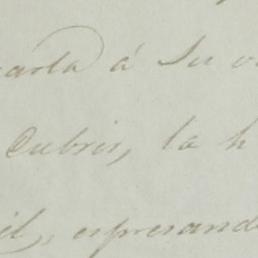 carta á su
Cubrir, la h
il, espresand